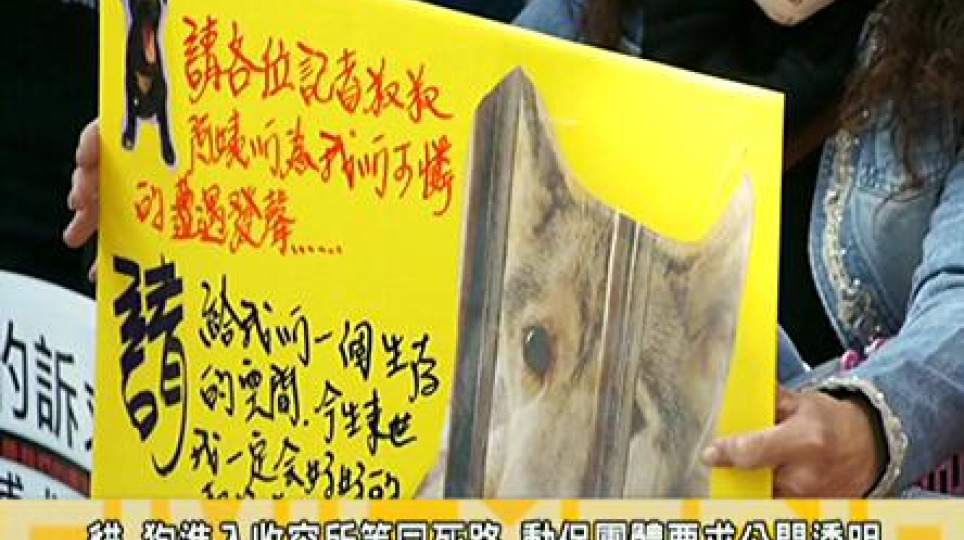 請各位記者叔叔
阿姨們為我們可憐
的遭遇發聲......
請
給我們一個生存
的空間.今生來世
我一定會好好的
的訴求
貓 狗進入收容所等同死路 動保團體要求公開透明